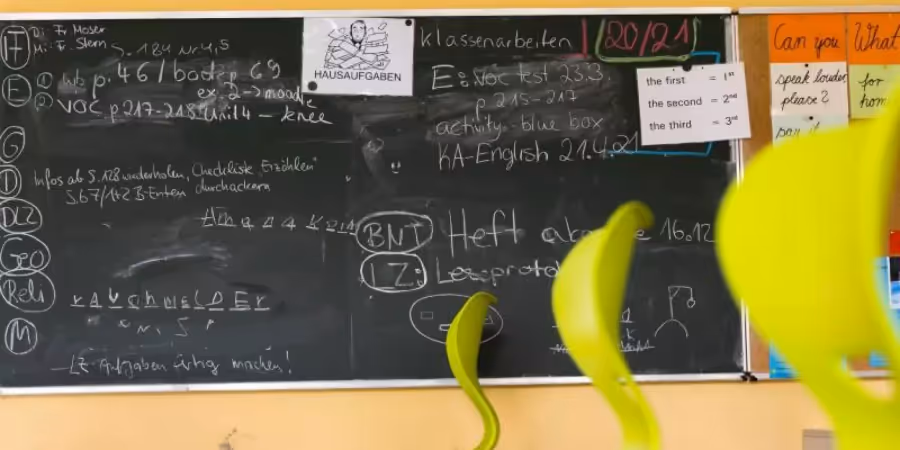 Di: Fr. Moser
Mi: Fr. Stern
S. 184 Nr. 4,5
E
① wb p. 46 / 69
② voc p 217-218 Unit 4 – knee
ex. 2 → moodle
G
D
Infos ab S. 128 wiederholen, Checkliste „Erzählen"
S. 67/1+2 durchackern
Geo
Reli
RAUCHMELDER
M
LZ-Aufgaben fertig machen!
HAUSAUFGABEN
Klassenarbeiten
20/21
E: voc test 23.3.
p. 215-217
activity blue box
KA-English 21.4.21
BNT
Heft 16.12
LZ:
the first = 1st
the second = 2nd
the third = 3rd
Can you
speak louder
please?
say it
What
for